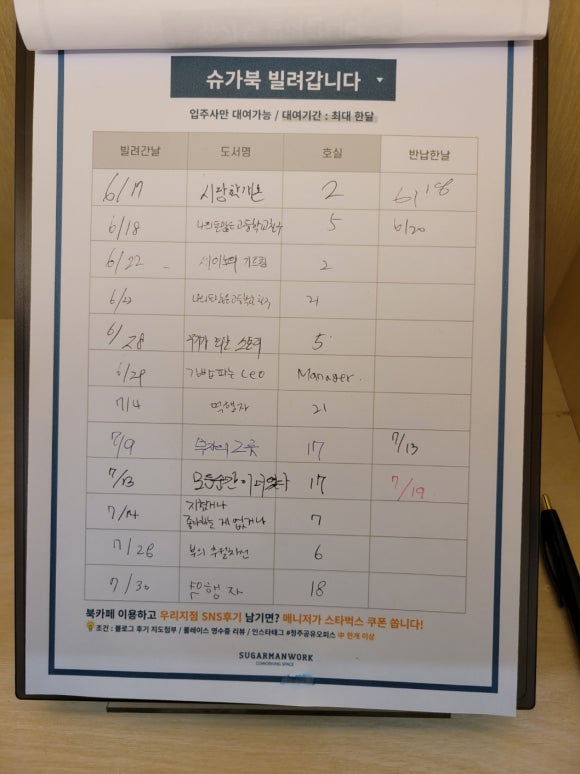 슈가북 빌려갑니다
입주사만 대여가능 / 대여기간 : 최대 한달
빌려간날 도서명 호실 반납한날
6/17 시장학개론 2 6/18
6/18 나의 돈많은 고등학교 친구 5 6/20
6/22 세이노의 가르침 2
6/27 나의 돈많은 고등학교 친구 21
6/28 스토리 5
6/29 파는 CEO Manager.
7/4 역행자 21
7/9 부자의 그릇 17 7/13
7/13 모든 순간이 너였다 17 7/19
7/14 지쳤거나
좋아하는 게 없거나 7
7/28 부의 추월차선 6
7/30 역행자 18
북카페 이용하고 우리지점 SNS후기 남기면? 매니저가 스타벅스 쿠폰 쏩니다!
조건 : 블로그 후기 지도첨부 / 플레이스 영수증 리뷰 / 인스타태그 #청주공유오피스 中 한개 이상
SUGARMANWORK
COWORKING SPACE